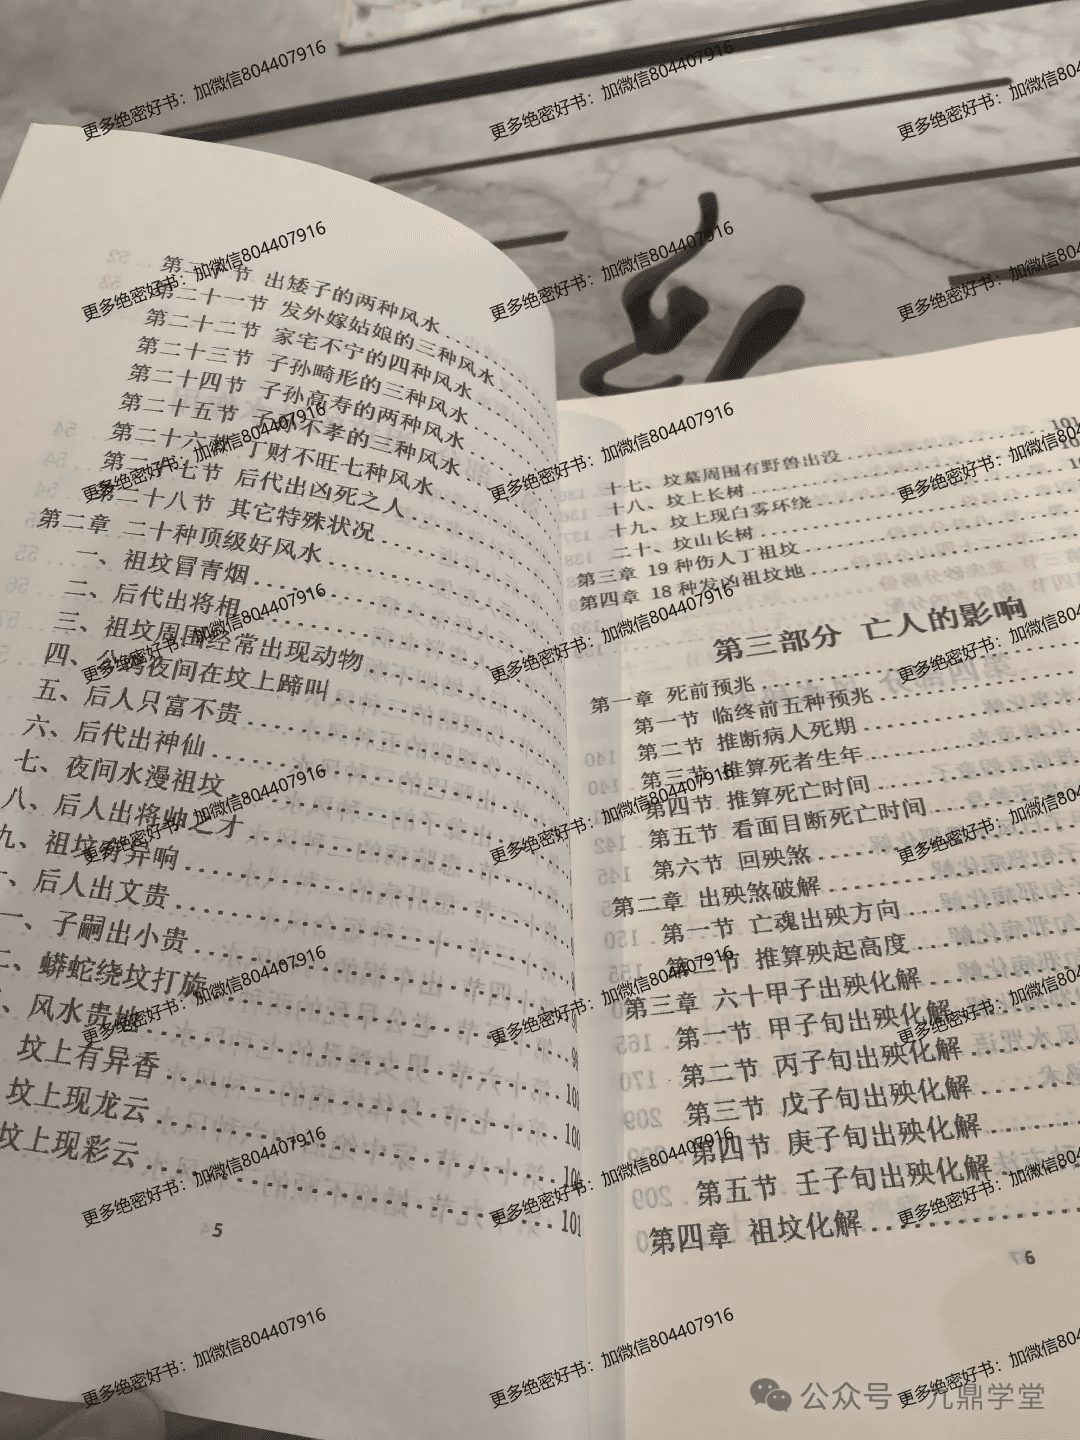 第二十节 出矮子的两种风水
第二十一节 发外嫁姑娘的三种风水
第二十二节 家宅不宁的四种风水
第二十三节 子孙畸形的三种风水
第二十四节 子孙高寿的两种风水
第二十五节 子孙不孝的三种风水
第二十六节 丁财不旺七种风水
第二十七节 后代出凶死之人
第二十八节 其它特殊状况
第二章 二十种顶级好风水
一、祖坟冒青烟
二、后代出将相
三、祖坟周围经常出现动物
四、公鸡夜间在坟上蹄叫
五、后人只富不贵
六、后代出神仙
七、夜间水漫祖坟
八、后人出将帅之才
九、祖坟有异响
、后人出文贵
一、子嗣出小贵
二、蟒蛇绕坟打旋
、风水贵地
坟上有异香
坟上现龙云
坟上现彩云 101
5
十七、坟墓周围有野兽出没 101
十八、坟上长树
十九、坟上现白雾环绕
二十、坟山长树
第三章 19 种伤人丁祖坟
第四章 18 种发凶祖坟地
第三部分 亡人的影响
第一章 死前预兆
第一节 临终前五种预兆
第二节 推断病人死期
第三节 推算死者生年
第四节 推算死亡时间
第五节 看面目断死亡时间
第六节 回殃煞
第二章 出殃煞破解
第一节 亡魂出殃方向
第二节 推算殃起高度
第三章 六十甲子出殃化解
第一节 甲子旬出殃化解
第二节 丙子旬出殃化解
第三节 戊子旬出殃化解
第四节 庚子旬出殃化解
第五节 壬子旬出殃化解
第四章 祖坟化解
6
更多绝密好书：加微信804407916
公众号·九鼎学堂